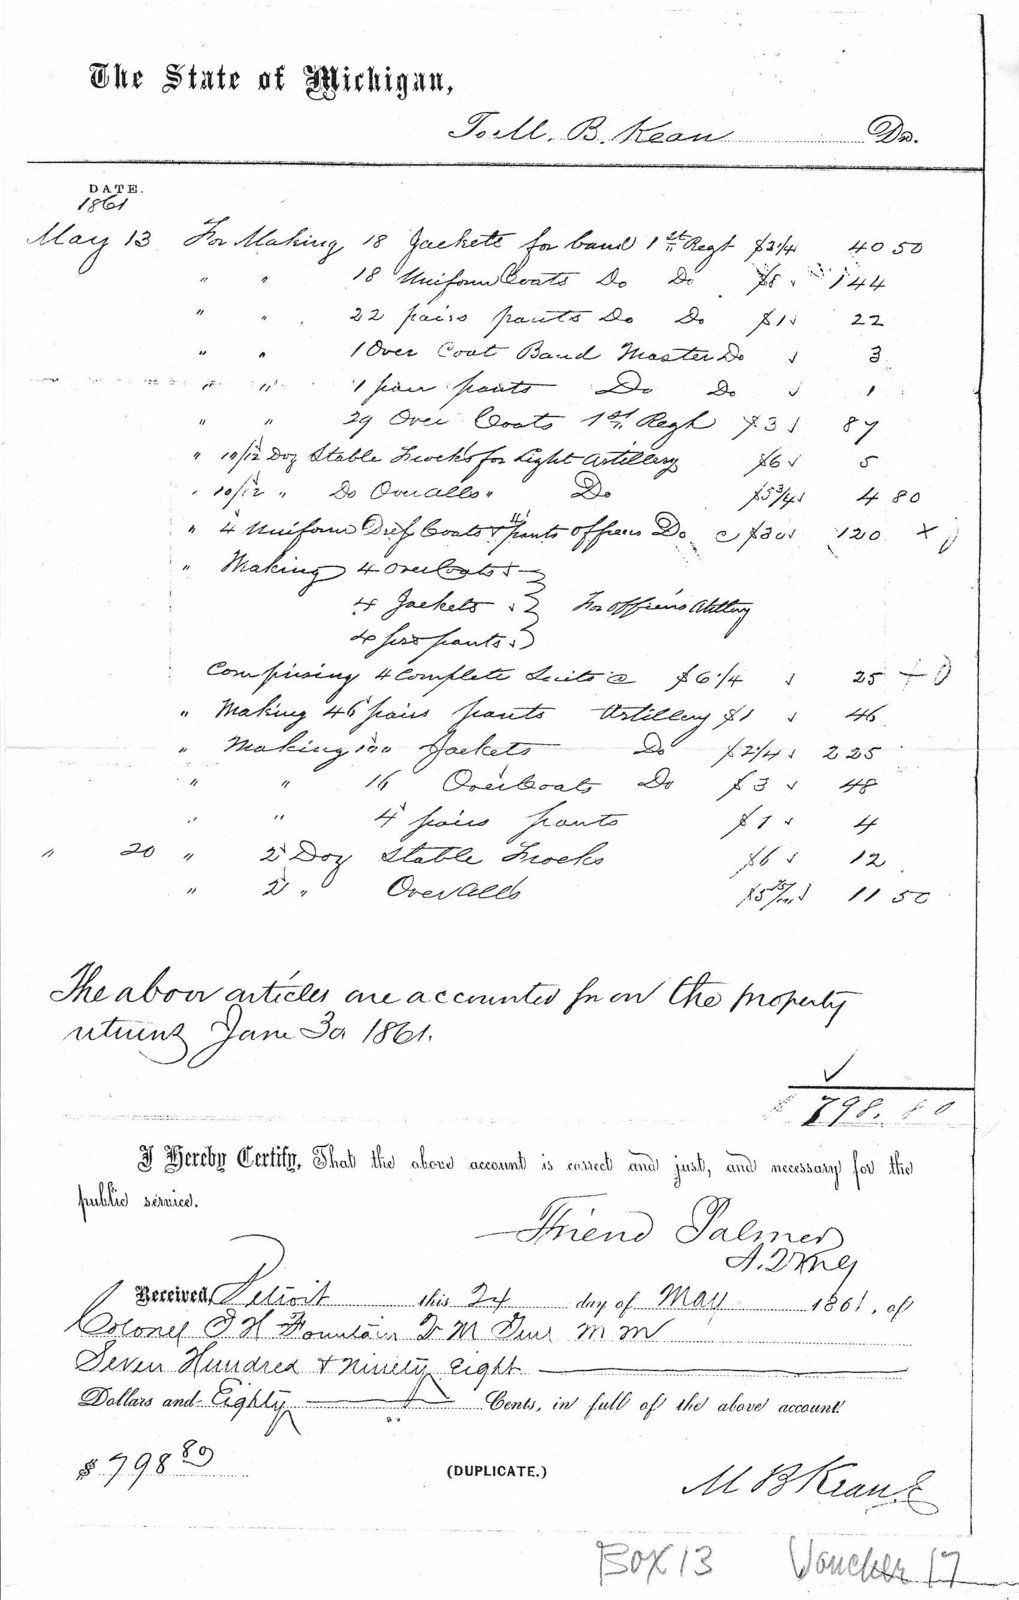 The State of Michigan,
To M. B. Kean Dr.
DATE.
1861
May 13 For Making 18 Jackets for band 1st Regt $2 1/4 40 50
" " 18 Uniform Coats Do Do $8 144
" " 22 pairs pants Do Do $1 22
" " 1 Over Coat Band Master Do 3
" " 1 pair pants Do Do 1
" " 29 Over Coats 1st Regt $3 87
" 10/12 Doz Stable Frocks for Light Artillery $6 5
" 10/12 " Do Overalls " Do $5 3/4 4 80
" 4 Uniform Dress Coats & 4 pants officers Do @ $30 120 x
" Making 4 overCoats
4 Jackets For officers Artillery
4 prs pants
Comprising 4 complete Suits @ $6 1/4 25 +
" Making 46 pairs pants Artillery $1 46
" Making 100 Jackets Do $2 1/4 225
" " 16 OverCoats Do $3 48
" " 4 pairs pants $1 4
" 20 " 2 Doz Stable Frocks $6 12
" 2 " Overalls $5 75/100 11 50
The above articles are accounted for on the property
returns June 30 1861.
$ 798. 80
I Hereby Certify, That the above account is correct and just, and necessary for the
public service.
Friend Palmer
A. Q M G
Received, Detroit this 24 day of May 1861, of
Colonel J H Fountain Q M Genl M M
Seven Hundred & Ninety Eight
Dollars and Eighty Cents, in full of the above account.
$ 798 80 (DUPLICATE.) M B Kean
Box 13 Voucher 17